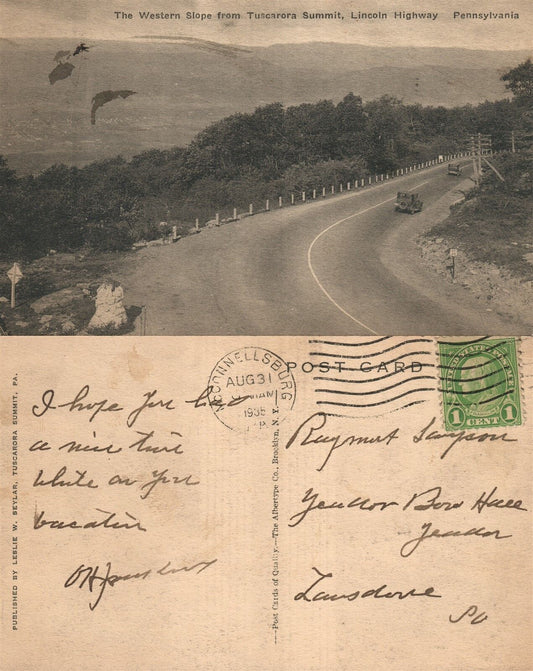 The Western Slope from Tuscarora Summit, Lincoln Highway Pennsylvania
POST CARD
McCONNELLSBURG
AUG 31
AM
1935
PA.
UNITED STATES POSTAGE
1 CENT 1
I hope you had
a nice time
while on your
vacation
Raymond Sampson
Yeadon Boro Hall
Yeadon
Lansdowne
Pa
PUBLISHED BY LESLIE W. SEYLAR, TUSCARORA SUMMIT, PA.
—Post Cards of Quality.—The Albertype Co., Brooklyn, N. Y.—